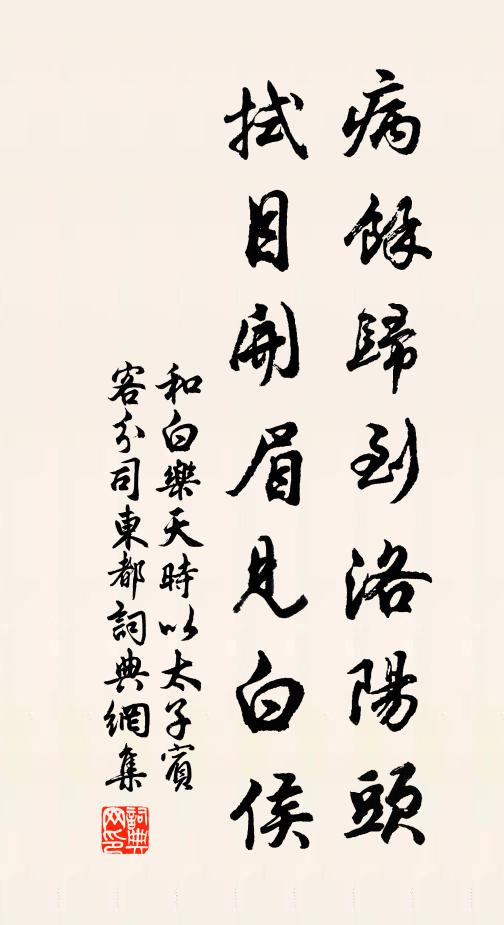 病餘歸到洛陽頭
拭目開眉見白侯
和白樂天時以太子賓
客分司東都詞典網集
詞典網印